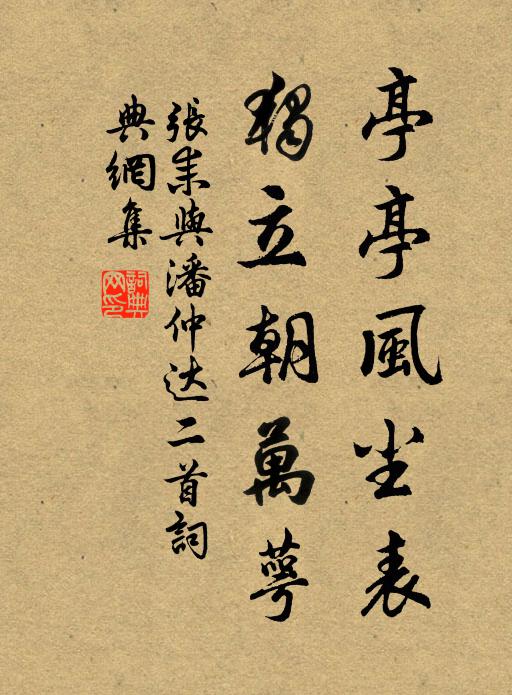 亭亭風尘表
獨立朝萬萼
張耒與潘仲达二首詞
典網集
詞典网印